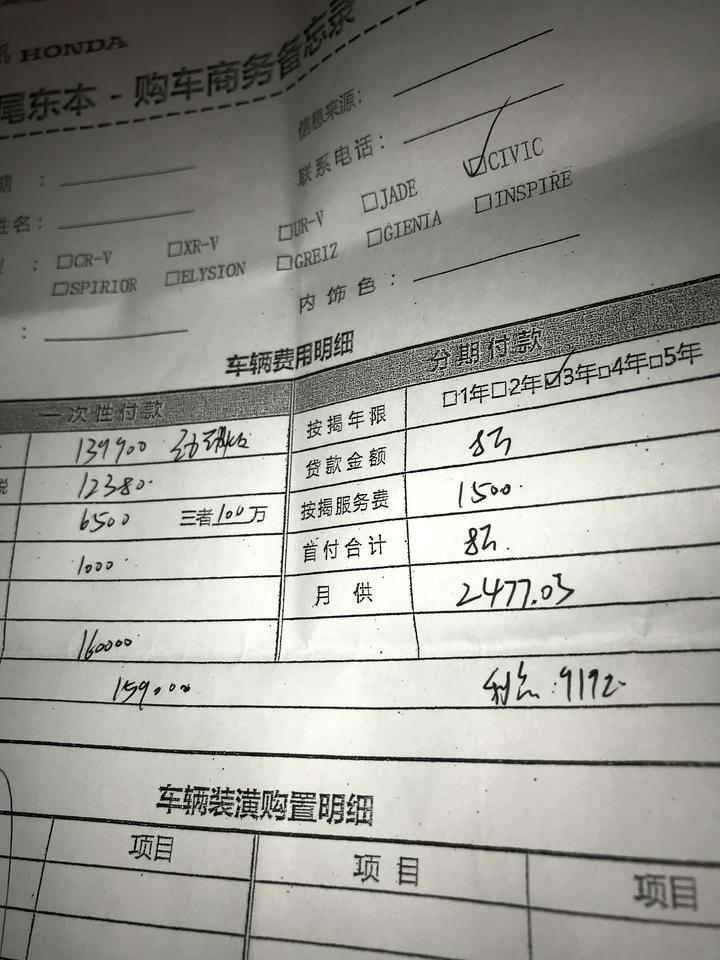 HONDA
尾东本 - 购车商务备忘录
期 : 信息来源:
姓名: 联系电话:
: □CR-V □XR-V □UR-V □JADE ☑CIVIC
□SPIRIOR □ELYSION □GREIZ □GIENIA □INSPIRE
: 内饰色:
车辆费用明细
一次性付款 分期付款
139900 按揭年限 □1年□2年☑3年□4年□5年
税 12380 贷款金额 8万
6500 三者100万 按揭服务费 1500
1000 首付合计 8万
月供 2477.03
160000
159000 利息:9172
车辆装潢购置明细
项目 项目 项目